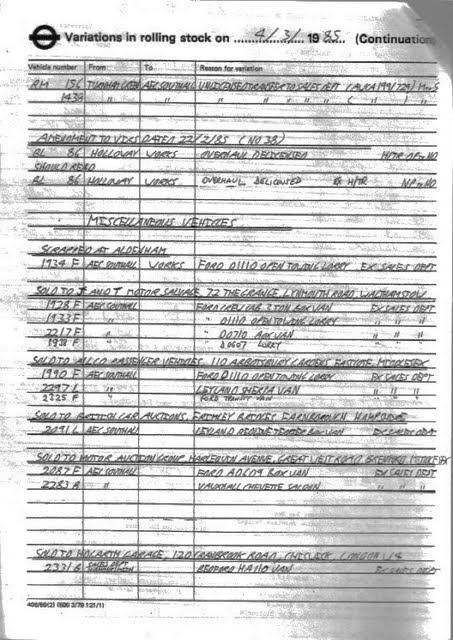 Variations in rolling stock on 4/3/ 1985 (Continuation
Vehicle number From To Reason for variation
RM 156 TURNHAM GREEN AEC SOUTHALL UNLICENSED TRANSFER TO SALES DEPT
1438 " " " " " " "
AMENDMENT TO VIRS DATED 22/2/85 (NO 38)
BL 86 HOLLOWAY WORKS OVERHAUL DELICENSED H/TR NP to NO
SHOULD READ
BL 86 HOLLOWAY WORKS OVERHAUL DELICENSED Ex H/TR NP to NO
MISCELLANEOUS VEHICLES
SCRAPPED AT ALDENHAM
1934 F AEC SOUTHALL WORKS FORD D1110 OPEN TOWING LORRY EX SALES DEPT
SOLD TO J AND T MOTOR SALVAGE, 72 THE GRANGE, LYNMOUTH ROAD, WALTHAMSTOW
1928 F AEC SOUTHALL FORD CREW CAB 3 TON BOX VAN EX SALES DEPT
1933 F " " D1110 OPEN TOWING LORRY " " "
2217 F " " D0710 BOX VAN " " "
1938 F " " D0607 LORRY " " "
SOLD TO ALLCO PASSENGER VEHICLES, 110 ABBOTSBURY GARDENS EASTCOTE, MIDDLESEX
1990 F AEC SOUTHALL FORD D1110 OPEN TOWING LORRY EX SALES DEPT
2297 L " LEYLAND SHERPA VAN " " "
2325 F " FORD TRANSIT VAN " " "
SOLD TO BRITISH CAR AUCTIONS, FRIMLEY BRIDGES FARNBOROUGH HAMPSHIRE
2091 L AEC SOUTHALL LEYLAND BOX VAN EX SALES DEPT
SOLD TO MOTOR AUCTION GROUP, HARLEQUIN AVENUE, GREAT WEST ROAD BRENTFORD MIDDLESEX
2087 F AEC SOUTHALL FORD A0609 BOX VAN EX SALES DEPT
2283 B " VAUXHALL CHEVETTE SALOON " " "
SOLD TO HOGARTH GARAGE, 120 CRANBROOK ROAD, CHISWICK, LONDON W4
2331 B SALES DEPT BEDFORD HA110 VAN EX SALES DEPT